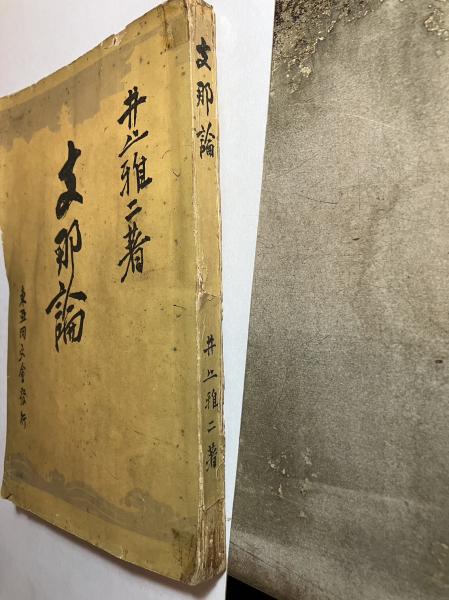 井上雅二著
支那論
東亜同文會發行
支那論
井上雅二著